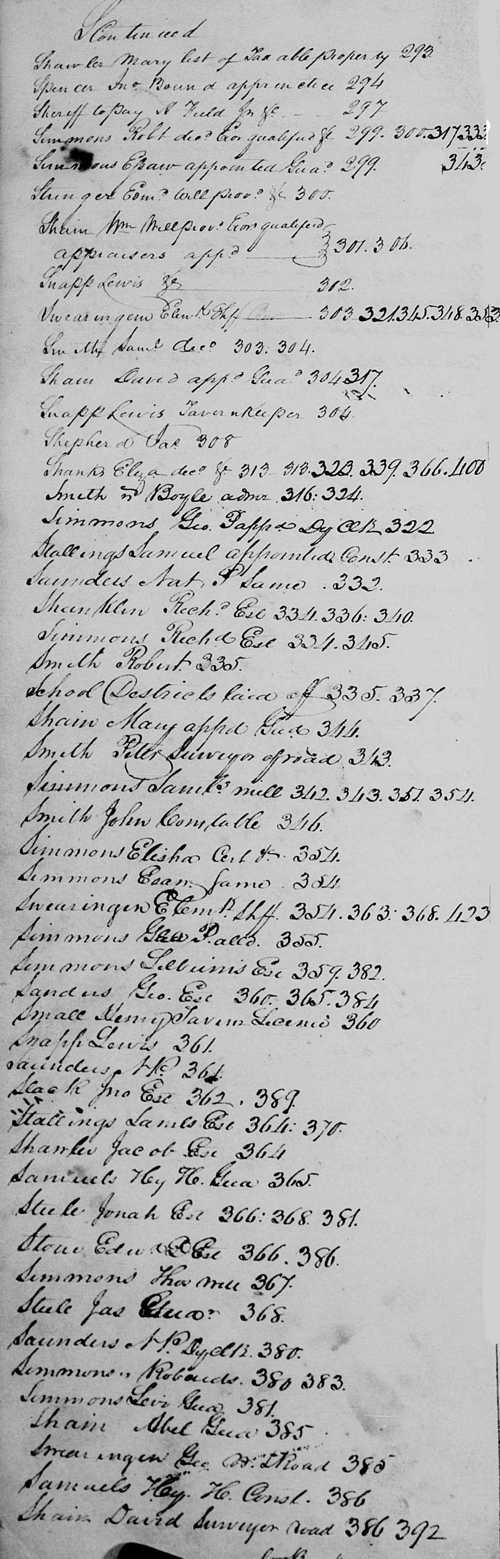 S Continued
Shawler Mary list of Taxable property 293
Spencer Jno Bound apprentice 294
Sheriff to pay A Field Jr &c 297
Simmons Robt decd Exor qualified &c 299. 300. 317. 333
Simmons Esaw appointed Guad 299. 343
Stringer Edmd Will provd &c 300.
Shain Wm Will provd Exor qualified
appraisers appd 301. 306.
Snapp Lewis &c 302.
Swearingem Elemd Shff 303. 321. 345. 348.
Saml decd 303. 304.
Shain David appd Guad 304 317.
Snapp Lewis Tavernkeeper 304
Shepherd Jas 308
Shanks Eliza decd &c 313 313. 323. 339. 366. 400
Smith vs Boyle admr 316: 324.
Simmons Geo. P appd Dy Clk 322
Stallings Samuel appointed Const. 333
Saunders Nat P Same. 332.
Shanklin Richd Exe 334. 336: 340.
Simmons Richd Exe 334. 345.
Smith Robert 335.
School Districts laid off 335. 337.
Shain Mary appd Gud 344.
Smith Peter Surveyor of road 343.
Simmons Samls mill 342. 343. 351. 354.
Smith John Constable 346.
Simmons Elisha Cert &c 354.
Simmons Esaw Same. 354
Swearingen Elemd Shff. 354. 363: 368. 423
Simmons Geo P allo. 355.
Simmons Exe 359. 382.
Sanders Geo. Exe 360. 365. 384
Small Henry Tavern License 360
Snapp Lewis 361.
Saunders N P. 361
Slack Jno Exe 362. 389.
Stallings Samls Exe 364: 370.
Shawler Jacob Exe 364
Samuels Hy H. Gua 365.
Steele Jonah Exe 366: 368. 381.
Stone Edw Exe 366. 386.
Simmons Thos mill 367.
Steele Jas 368.
Saunders N P. Dy Clk. 380.
Simmons vs Robards. 380 383.
Simmons Levi Gua 381.
Shain Abel Gua 385
Swearingen Geo W. Road 385
Samuels Hy. H. Const. 386
Shain David Surveyor road 386 392